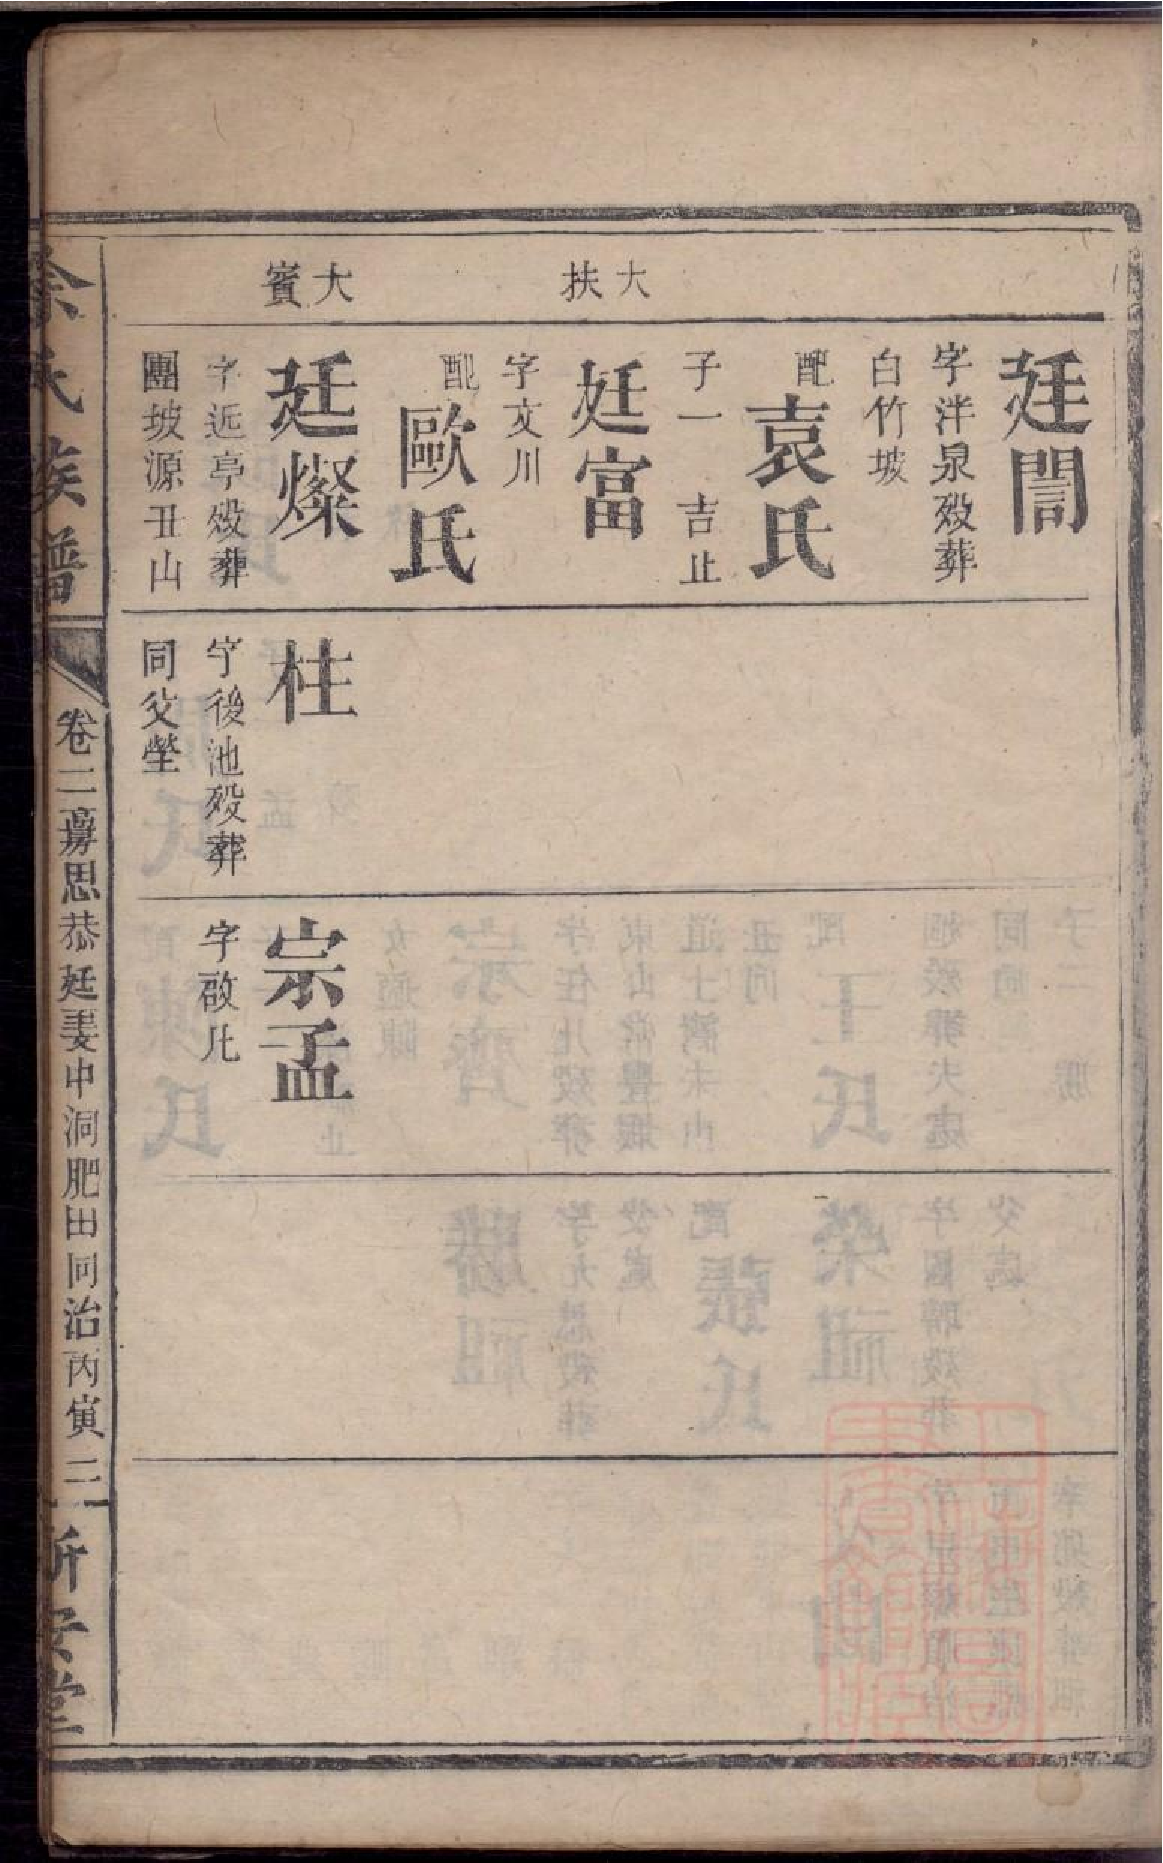 大扶
大賓
廷誾
字泮泉殁葬
白竹坡
配袁氏
子一 吉止
廷富
字文川
配歐氏
廷燦
字近亭殁葬
團坡源丑山
柱
字後池殁葬
同父塋
宗孟
字啟
余氏族譜
卷二 房思恭廷斐中洞肥田同治丙寅 三
新安堂